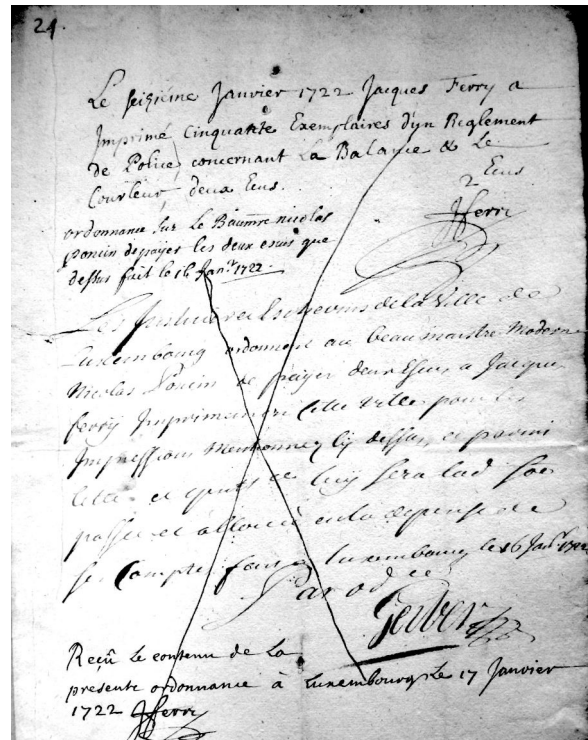 24.
Le seizième Janvier 1722 Jacques Ferry a
Imprimé Cinquante Exemplaires d'un Reglement
de Police, concernant La Balance & Le
Couleur, deux Ecus.
Ecus
2
JFerri
ordonnance sur Le Baumre nicolas
poncin de payer les deux escus que
dessus fait le 16 Janr. 1722.
Les Justicier et Eschevins de la Ville de
Luxembourg ordonnent au beaumaistre Moderne
Nicolas Poncin de payer deux Escus a Jacque
ferry Imprimeur de cette Ville pour les
Impressions Mentionnez cy dessus, et parmi
cette et quit ce luy sera lad. soe
passée et allouée en la depense de
ses Compte fait a luxembourg le 16 Janr. 1722
Par odce
Gerber
Reçû Le contenu de La
presente ordonnance à Luxembourg Le 17 Janvier
1722 JFerri